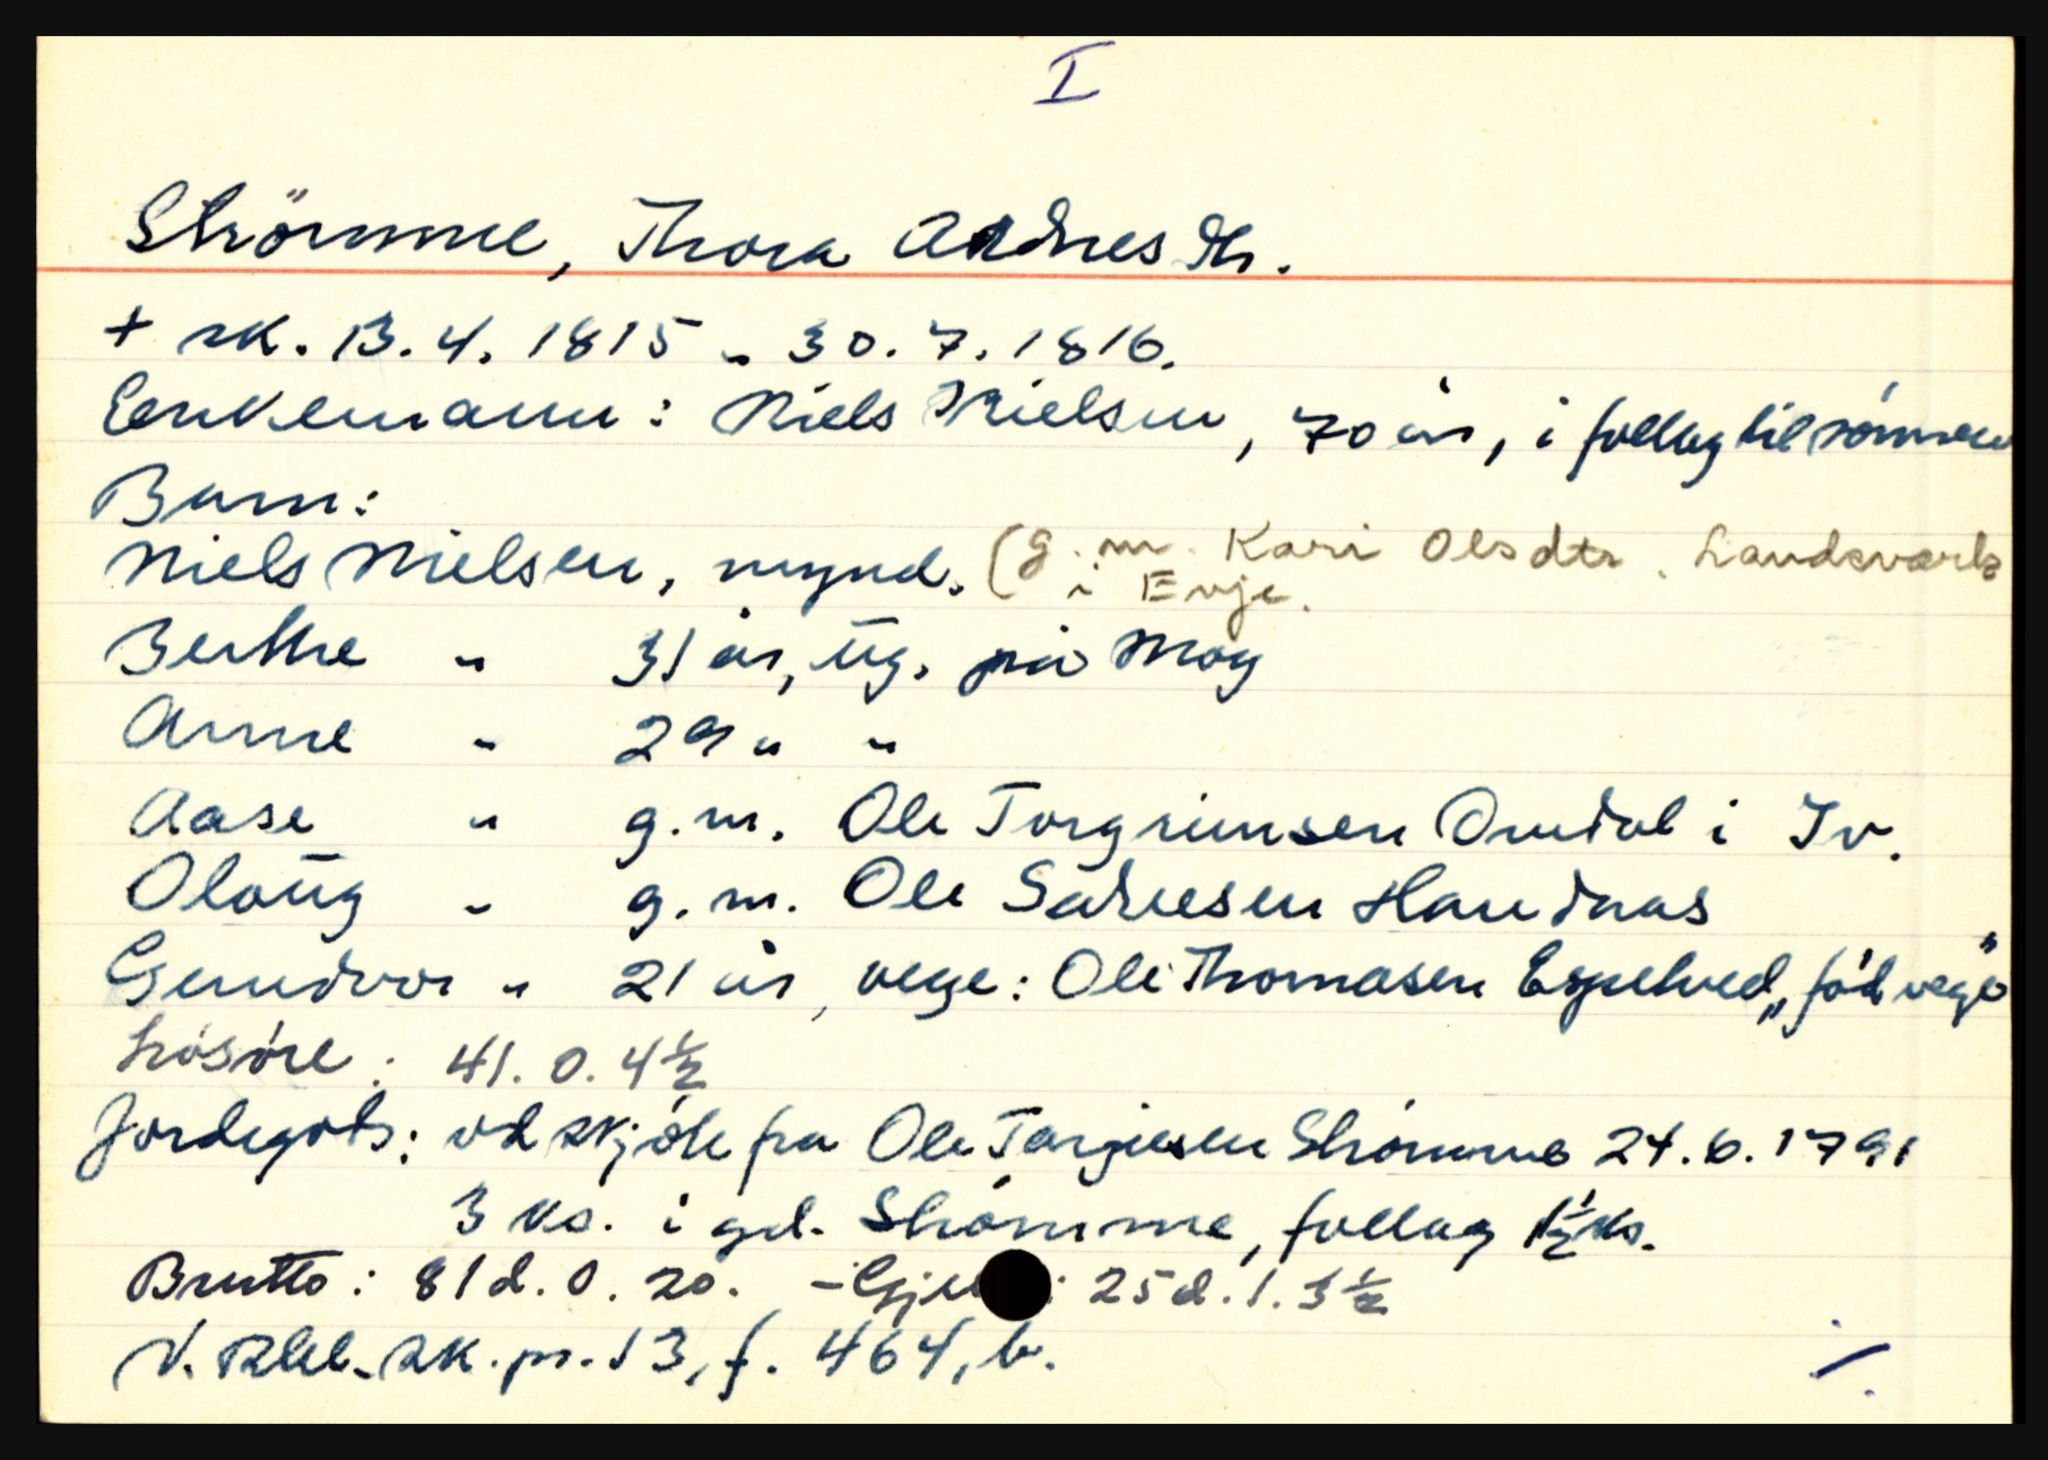 I
Strömme, Thora Andresdtr.
+ sk. 13.4.1815 - 30.7.1816.
Enkemann: Niels Nielsen, 70 år, i follag til sønnen
Barn:
Niels Nielsen, mynd. (g.m. Kari Olsdtr. Landsverk
i Evje.
Berthe " 31 år, ug. på Moy
Anne " 29 " "
Aase " g.m. Ole Torgrimsen Omdal i Iv.
Oloug " g.m. Ole Salvesen Haudnas
Gundvor " 21 år, verge: Ole Thomasen Espetved, „fød verge"
Lösöre: 41.0.4½
Jordegods: ved skjöte fra Ole Targiesen Strömme 24.6.1791
3 ks. i gd. Strömme, follag 1½ ks.
Brutto: 81d.0.20. - : 25d.1.3½
V. Rbl. sk.pr. 13, f. 464, b.